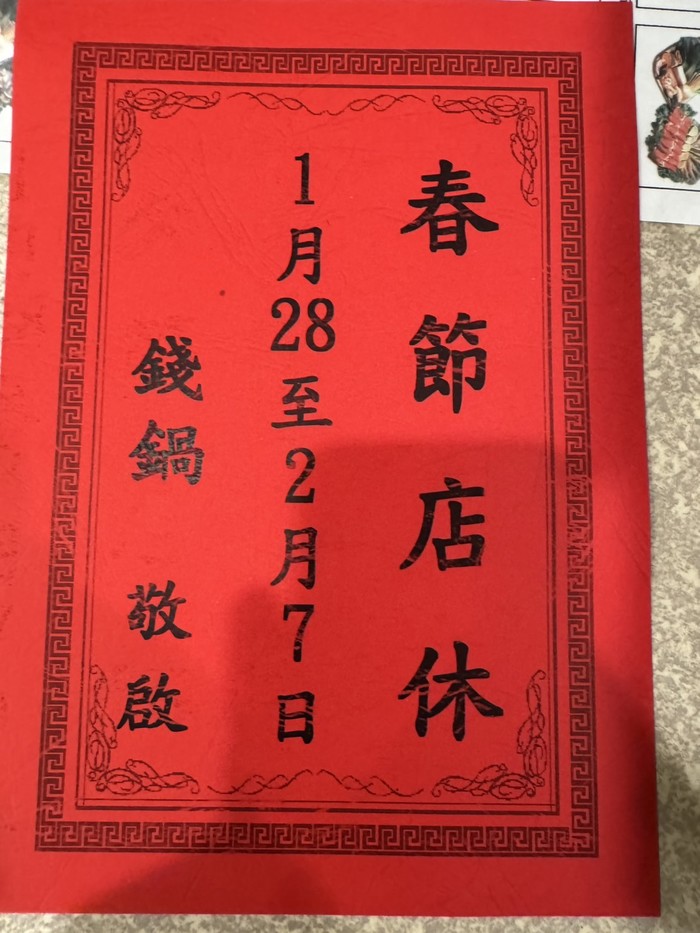 春節店休
1月28至2月7日
錢鍋 敬啟